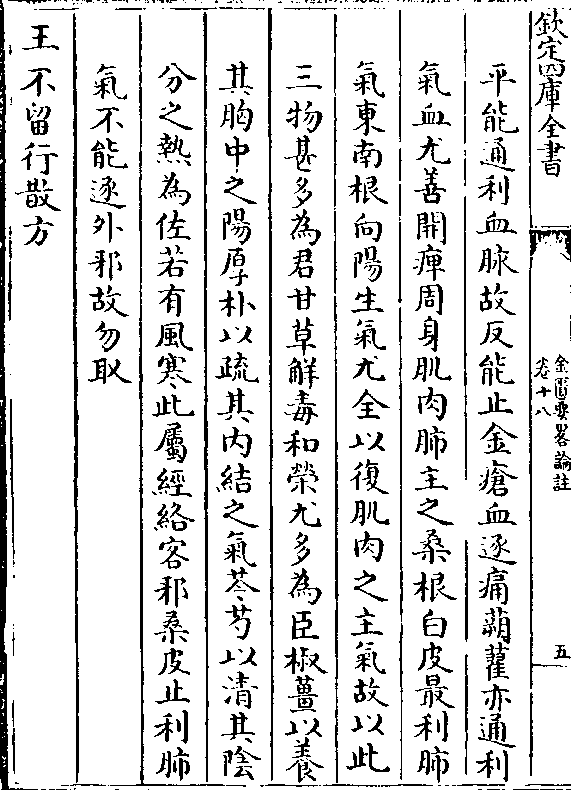 欽定四庫全書
金匱要畧論註
卷十八
五
平能通利血脉故反能止金瘡血逐痛蒴藋亦通利
氣血尤善開痺周身肌肉肺主之桑根白皮最利肺
氣東南根向陽生氣尤全以復肌肉之主氣故以此
三物甚多為君甘草解毒和榮尤多為臣椒薑以養
其胸中之陽厚朴以疏其内結之氣芩芍以清其陰
分之熱為佐若有風寒此屬經絡客邪桑皮止利肺
氣不能逐外邪故勿取
王不留行散方